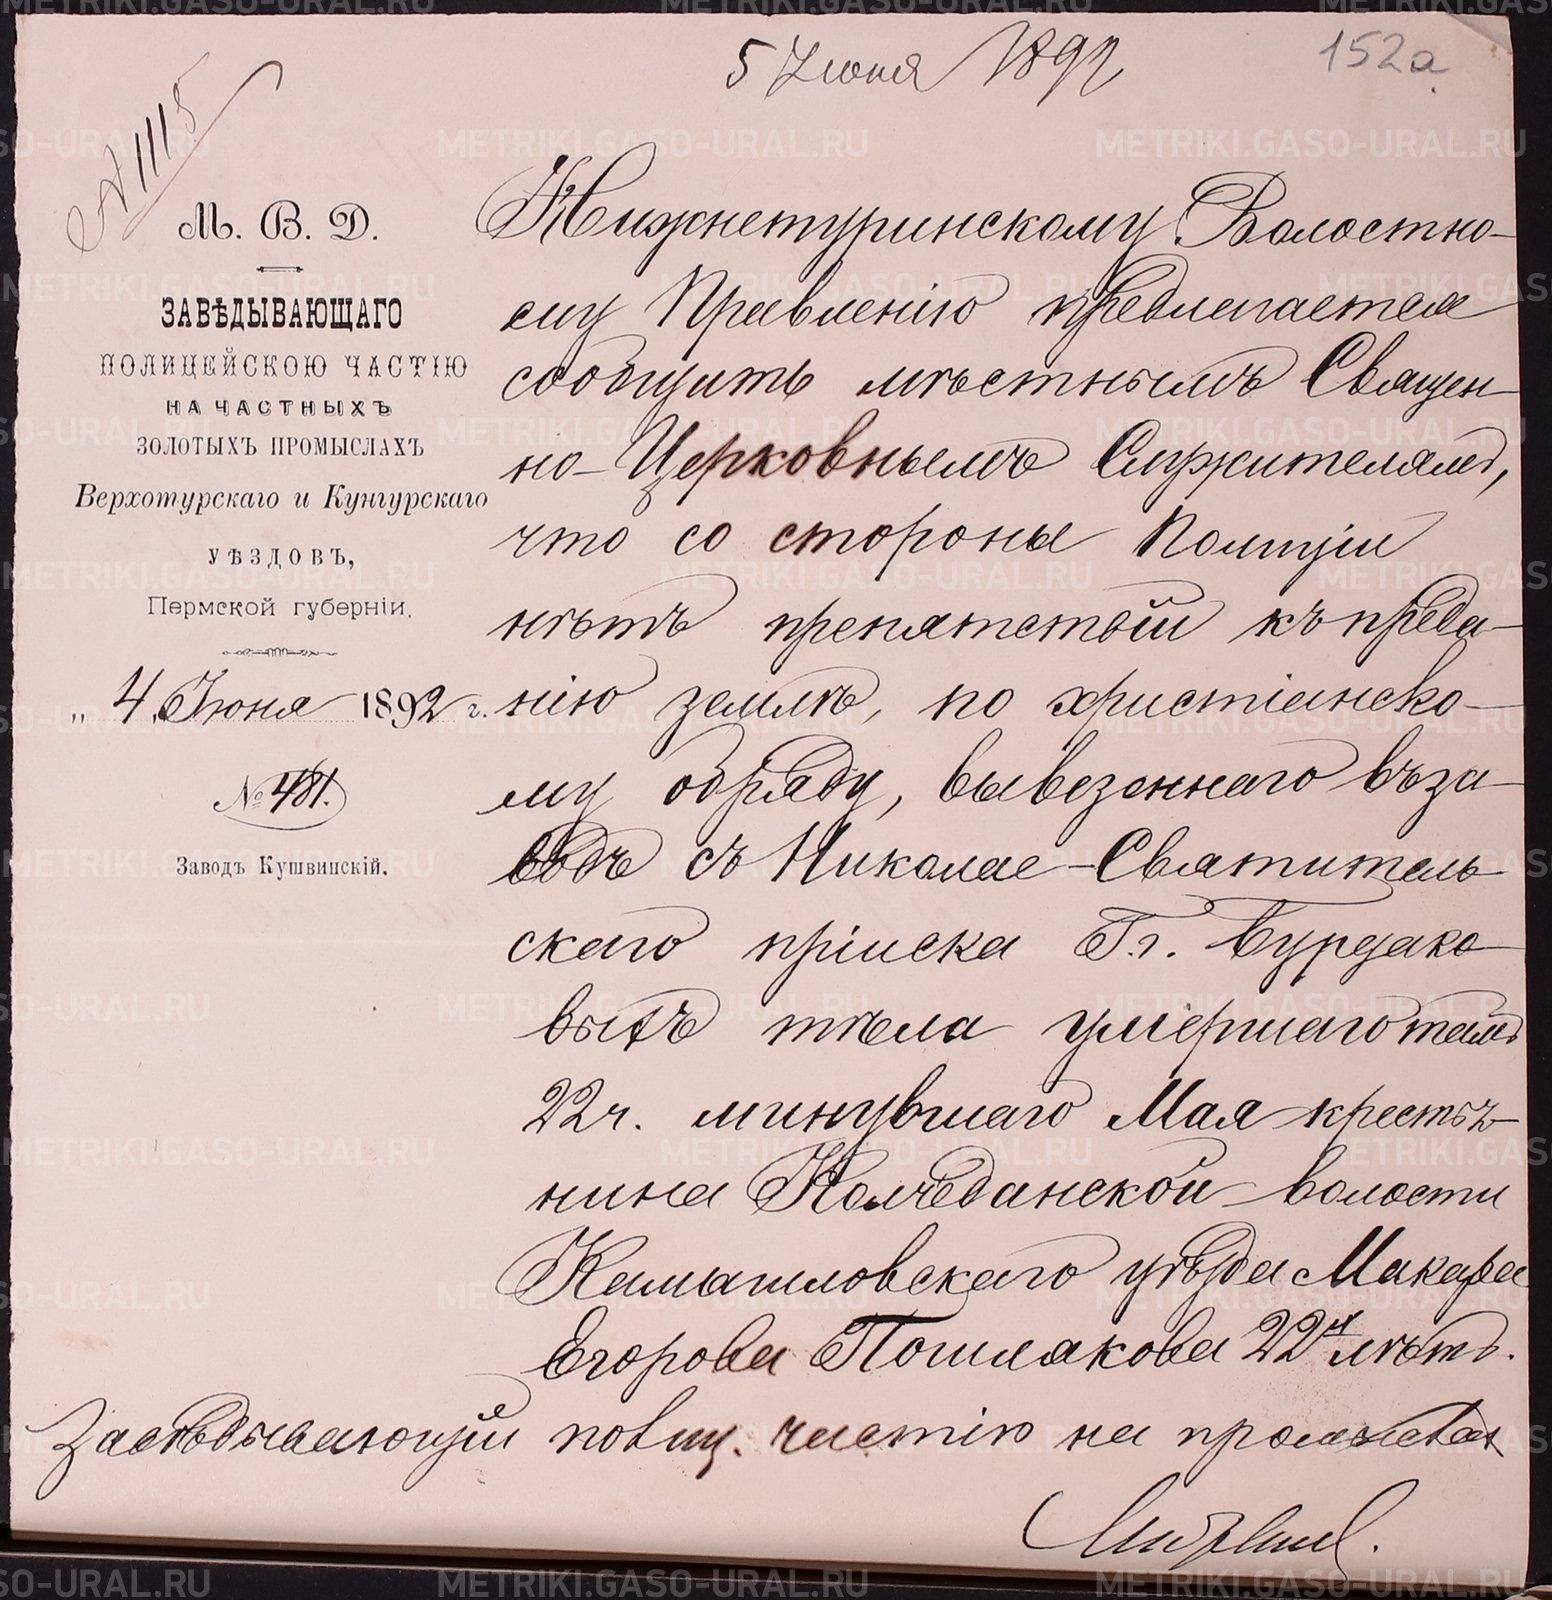 5 Июня 1892
152а
№ 1115
М. В. Д.
ЗАВѢДЫВАЮЩАГО
ПОЛИЦЕЙСКОЮ ЧАСТІЮ
НА ЧАСТНЫХЪ
ЗОЛОТЫХЪ ПРОМЫСЛАХЪ
Верхотурскаго и Кунгурскаго
УѢЗДОВЪ,
Пермской губерніи.
„ 4 „ Июня 1892 г.
№ 481.
Заводъ Кушвинскій.
Нижнетуринскому Волостно-
му Правленію предлагается
сообщить мѣстнымъ Священ-
но-Церковнымъ Служителямъ,
что со стороны Полиціи
нѣтъ препятствій къ преда-
нію землѣ, по христіанско-
му обряду, вывезеннаго въ за-
водъ съ Николае-Святитель-
скаго пріиска Гг. Бурдако-
выхъ тѣла умершаго тамъ
22 ч. минувшаго Мая крестья-
нина Колчеданской волости
Камышловскаго уѣзда Макара
Егорова Пошлякова 22х лѣтъ.
Завѣдывающій полиц. частію на промыслах
METRIKI.GASO-URAL.RU